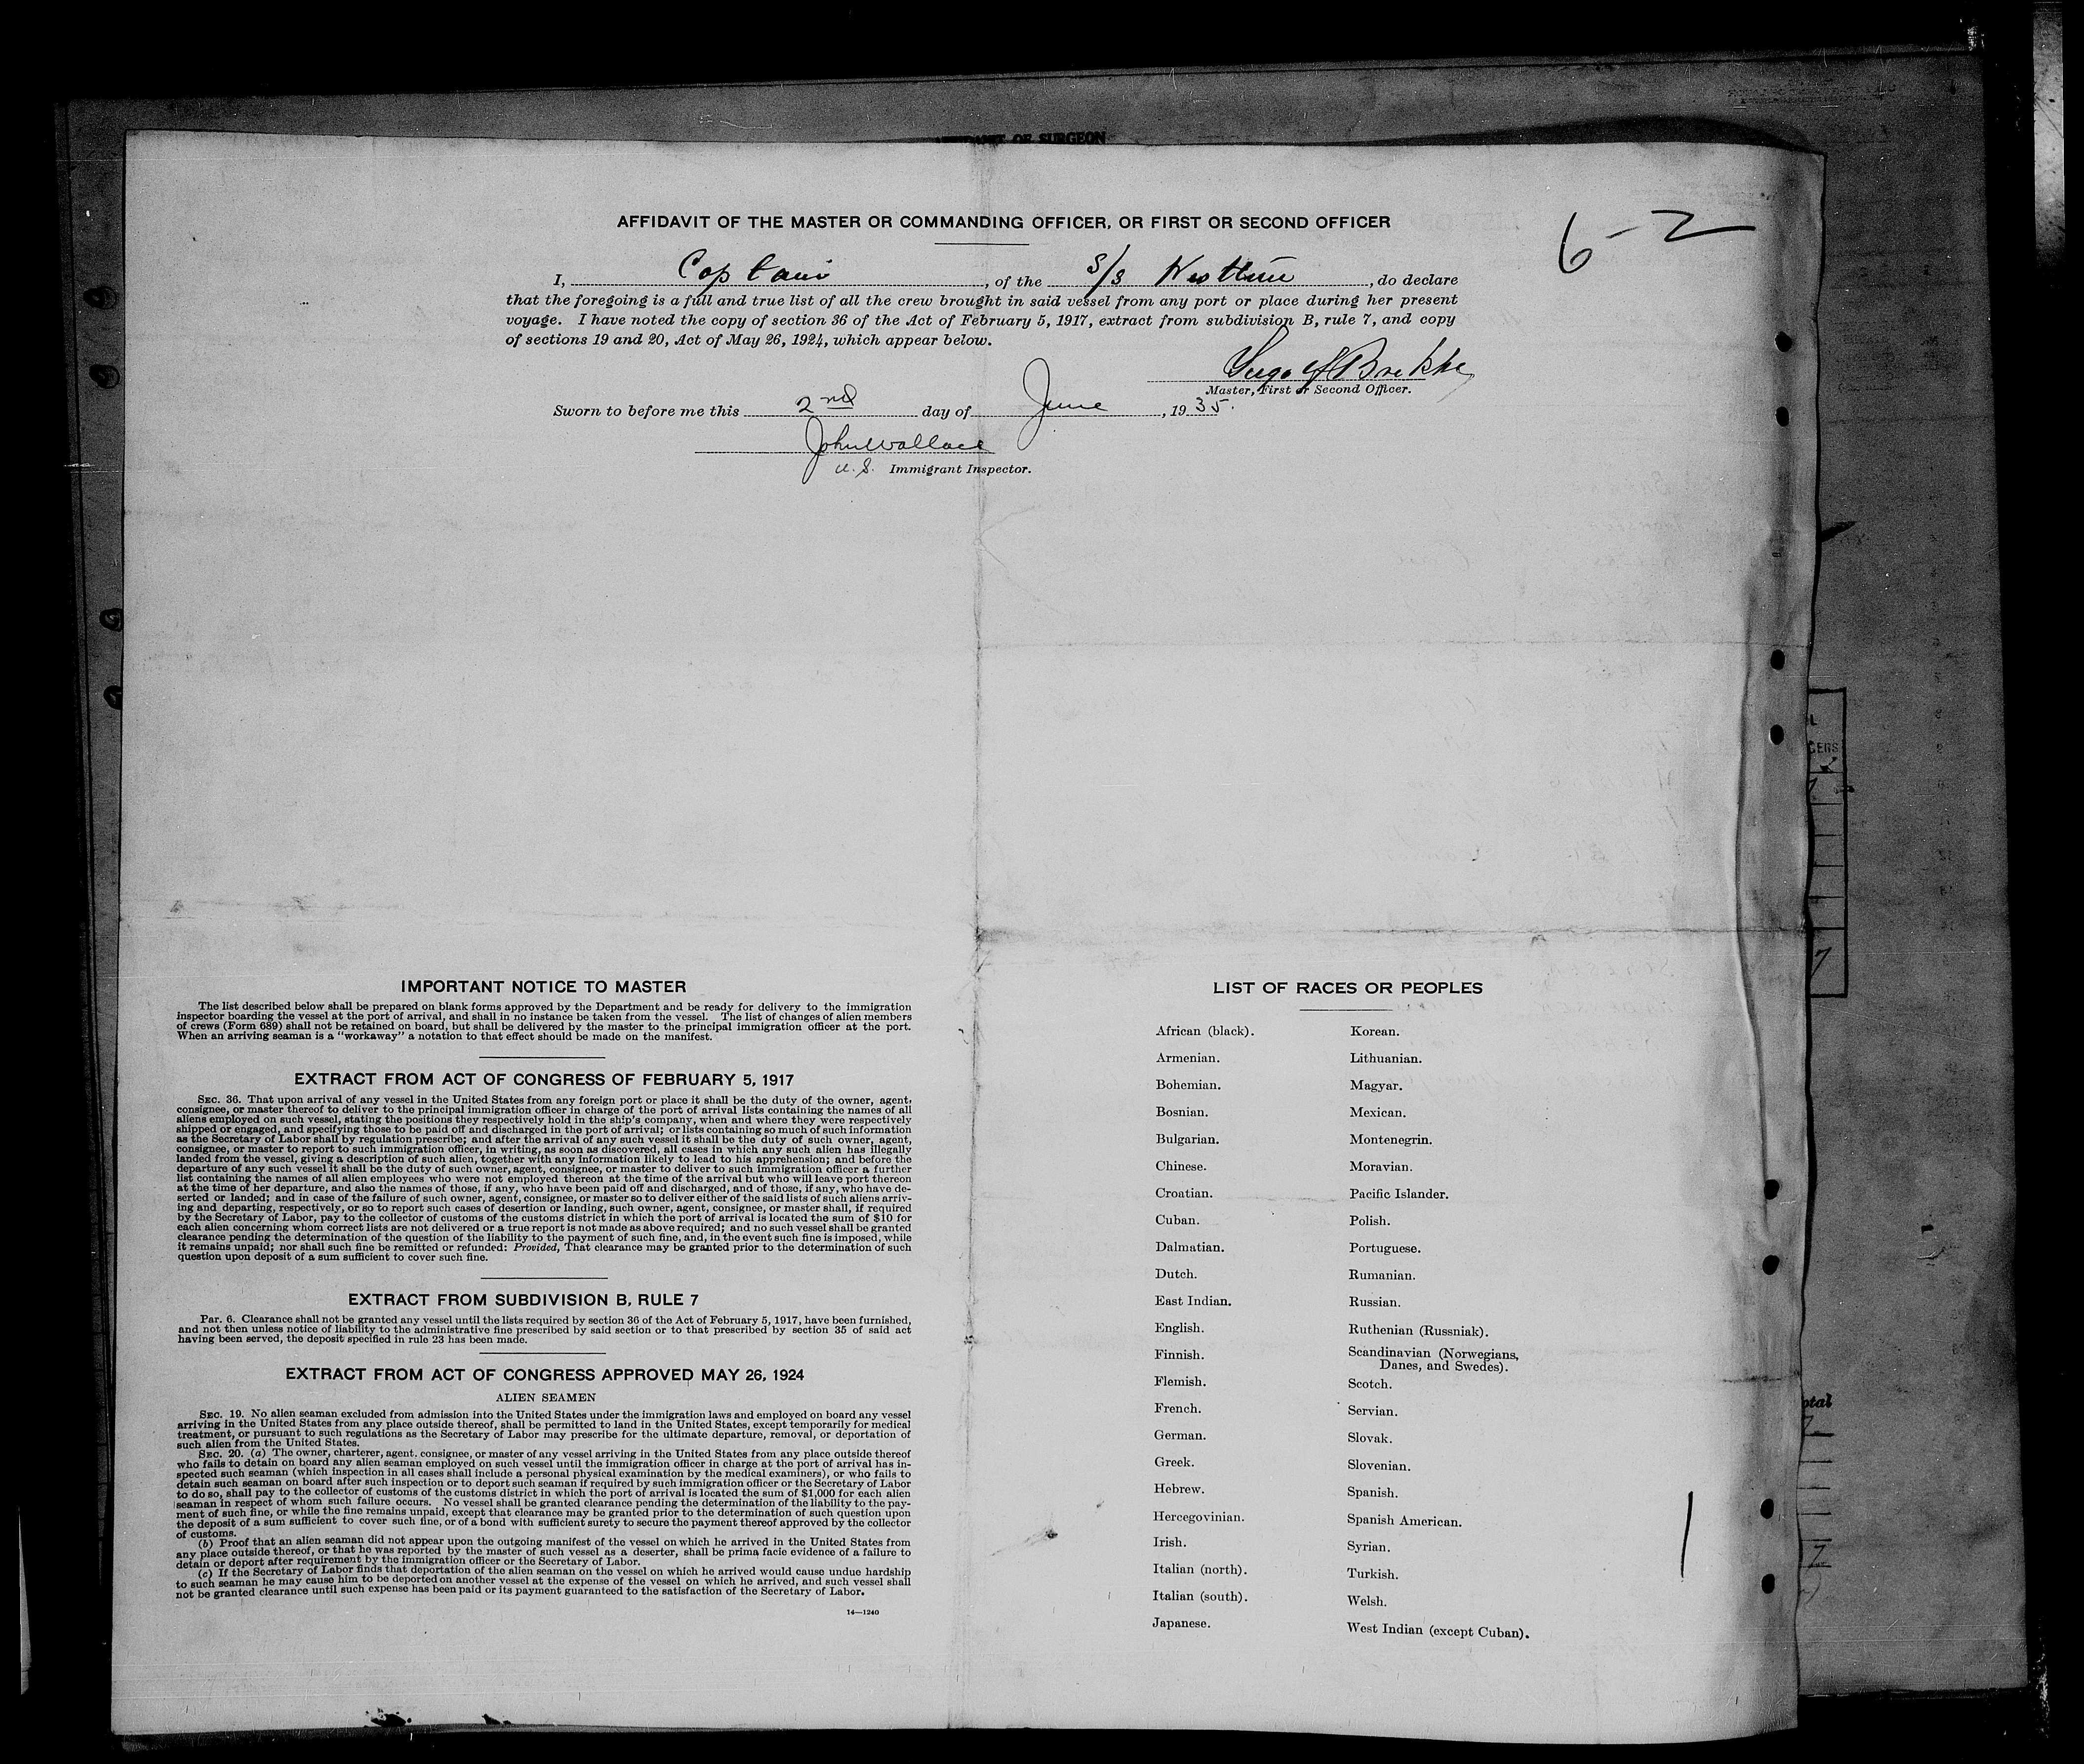 OF SURGEON
AFFIDAVIT OF THE MASTER OR COMMANDING OFFICER, OR FIRST OR SECOND OFFICER
6-2
I, Captain, of the S/S, do declare
that the foregoing is a full and true list of all the crew brought in said vessel from any port or place during her present
voyage. I have noted the copy of section 36 of the Act of February 5, 1917, extract from subdivision B, rule 7, and copy
of sections 19 and 20, Act of May 26, 1924, which appear below.
Master, First or Second Officer.
Sworn to before me this 2nd day of June, 1935.
John Wallace
U.S. Immigrant Inspector.
IMPORTANT NOTICE TO MASTER
The list described below shall be prepared on blank forms approved by the Department and be ready for delivery to the immigration
inspector boarding the vessel at the port of arrival, and shall in no instance be taken from the vessel. The list of changes of alien members
of crews (Form 689) shall not be retained on board, but shall be delivered by the master to the principal immigration officer at the port.
When an arriving seaman is a "workaway" a notation to that effect should be made on the manifest.
EXTRACT FROM ACT OF CONGRESS OF FEBRUARY 5, 1917
SEC. 36. That upon arrival of any vessel in the United States from any foreign port or place it shall be the duty of the owner, agent,
consignee, or master thereof to deliver to the principal immigration officer in charge of the port of arrival lists containing the names of all
aliens employed on such vessel, stating the positions they respectively hold in the ship's company, when and where they were respectively
shipped or engaged, and specifying those to be paid off and discharged in the port of arrival; or lists containing so much of such information
as the Secretary of Labor shall by regulation prescribe; and after the arrival of any such vessel it shall be the duty of such owner, agent,
consignee, or master to report to such immigration officer, in writing, as soon as discovered, all cases in which any such alien has illegally
landed from the vessel, giving a description of such alien, together with any information likely to lead to his apprehension; and before the
departure of any such vessel it shall be the duty of such owner, agent, consignee, or master to deliver to such immigration officer a further
list containing the names of all alien employees who were not employed thereon at the time of the arrival but who will leave port thereon
at the time of her departure, and also the names of those, if any, who have been paid off and discharged, and of those, if any, who have de-
serted or landed; and in case of the failure of such owner, agent, consignee, or master so to deliver either of the said lists of such aliens arriv-
ing and departing, respectively, or so to report such cases of desertion or landing, such owner, agent, consignee, or master shall, if required
by the Secretary of Labor, pay to the collector of customs of the customs district in which the port of arrival is located the sum of $10 for
each alien concerning whom correct lists are not delivered or a true report is not made as above required; and no such vessel shall be granted
clearance pending the determination of the question of the liability to the payment of such fine, and, in the event such fine is imposed, while
it remains unpaid; nor shall such fine be remitted or refunded: Provided, That clearance may be granted prior to the determination of such
question upon deposit of a sum sufficient to cover such fine.
EXTRACT FROM SUBDIVISION B, RULE 7
Par. 6. Clearance shall not be granted any vessel until the lists required by section 36 of the Act of February 5, 1917, have been furnished,
and not then unless notice of liability to the administrative fine prescribed by said section or to that prescribed by section 35 of said act
having been served, the deposit specified in rule 23 has been made.
EXTRACT FROM ACT OF CONGRESS APPROVED MAY 26, 1924
ALIEN SEAMEN
SEC. 19. No alien seaman excluded from admission into the United States under the immigration laws and employed on board any vessel
arriving in the United States from any place outside thereof, shall be permitted to land in the United States, except temporarily for medical
treatment, or pursuant to such regulations as the Secretary of Labor may prescribe for the ultimate departure, removal, or deportation of
such alien from the United States.
SEC. 20. (a) The owner, charterer, agent, consignee, or master of any vessel arriving in the United States from any place outside thereof
who fails to detain on board any alien seaman employed on such vessel until the immigration officer in charge at the port of arrival has in-
spected such seaman (which inspection in all cases shall include a personal physical examination by the medical examiners), or who fails to
detain such seaman on board after such inspection or to deport such seaman if required by such immigration officer or the Secretary of Labor
to do so, shall pay to the collector of customs of the customs district in which the port of arrival is located the sum of $1,000 for each alien
seaman in respect of whom such failure occurs. No vessel shall be granted clearance pending the determination of the liability to the pay-
ment of such fine, or while the fine remains unpaid, except that clearance may be granted prior to the determination of such question upon
the deposit of a sum sufficient to cover such fine, or of a bond with sufficient surety to secure the payment thereof approved by the collector
of customs.
(b) Proof that an alien seaman did not appear upon the outgoing manifest of the vessel on which he arrived in the United States from
any place outside thereof, or that he was reported by the master of such vessel as a deserter, shall be prima facie evidence of a failure to
detain or deport after requirement by the immigration officer or the Secretary of Labor.
(c) If the Secretary of Labor finds that deportation of the alien seaman on the vessel on which he arrived would cause undue hardship
to such seaman he may cause him to be deported on another vessel at the expense of the vessel on which he arrived, and such vessel shall
not be granted clearance until such expense has been paid or its payment guaranteed to the satisfaction of the Secretary of Labor.
14—1240
LIST OF RACES OR PEOPLES
African (black).
Armenian.
Bohemian.
Bosnian.
Bulgarian.
Chinese.
Croatian.
Cuban.
Dalmatian.
Dutch.
East Indian.
English.
Finnish.
Flemish.
French.
German.
Greek.
Hebrew.
Hercegovinian.
Irish.
Italian (north).
Italian (south).
Japanese.
Korean.
Lithuanian.
Magyar.
Mexican.
Montenegrin.
Moravian.
Pacific Islander.
Polish.
Portuguese.
Rumanian.
Russian.
Ruthenian (Russniak).
Scandinavian (Norwegians,
Danes, and Swedes).
Scotch.
Servian.
Slovak.
Slovenian.
Spanish.
Spanish American.
Syrian.
Turkish.
Welsh.
West Indian (except Cuban).